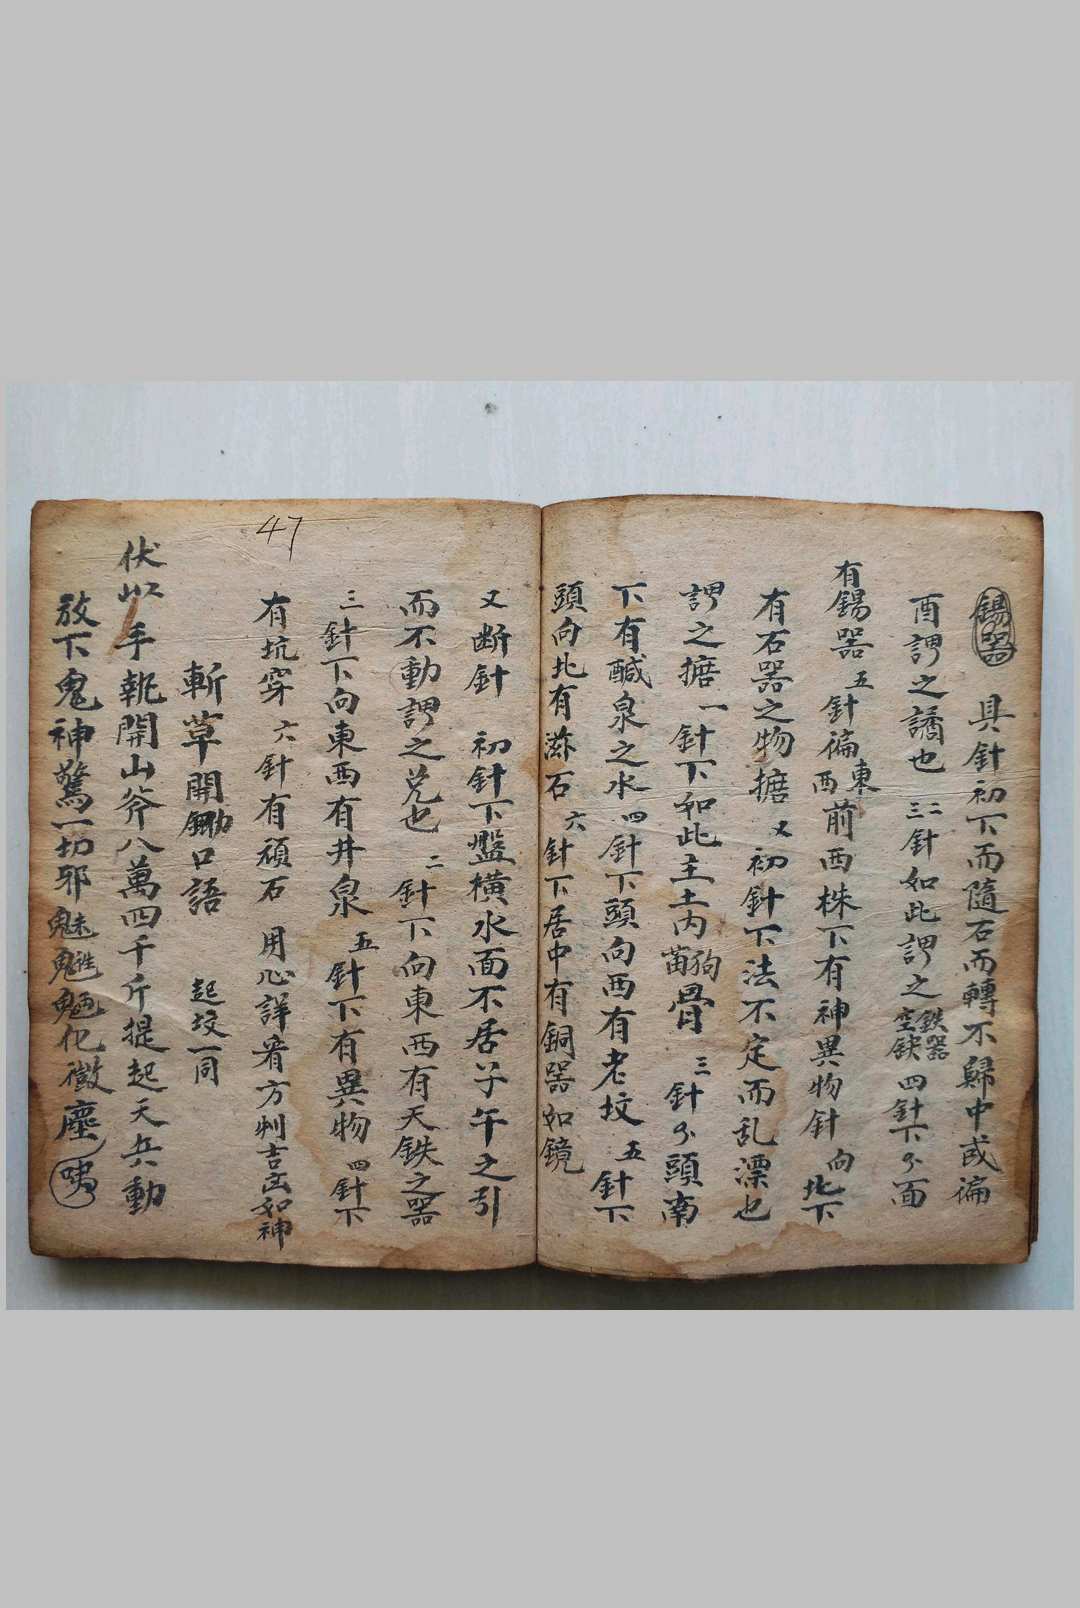 錫器
具針初下而隨石而轉不歸中或徧
酉謂之譎也 二三針如此謂之鉄器空鈌四針下 面
有錫器 五針徧東西前西株下有神異物針向北下
有石器之物摭 又初針下法不定而乱漂也
謂之摭 一針下如此主土內 狗骨 三針 頭南
下有鹹泉之水 四針下頭向西有老坟 五針下
頭向北有滋石 六針下居中有銅器如鏡
47
又断針 初針下盤橫水面不居子午之引
而不動謂之兌也 二針下向東西有天鉄之器
三針下向東西有井泉 五針下有異物 四針下
有坑穿 六針有頑石 用心詳看方判吉凶如神
斬草開鋤口語 起坟一同
伏以手執開山斧八萬四千斤提起天兵動
放下鬼神驚一切邪魅 魎化微塵 咦